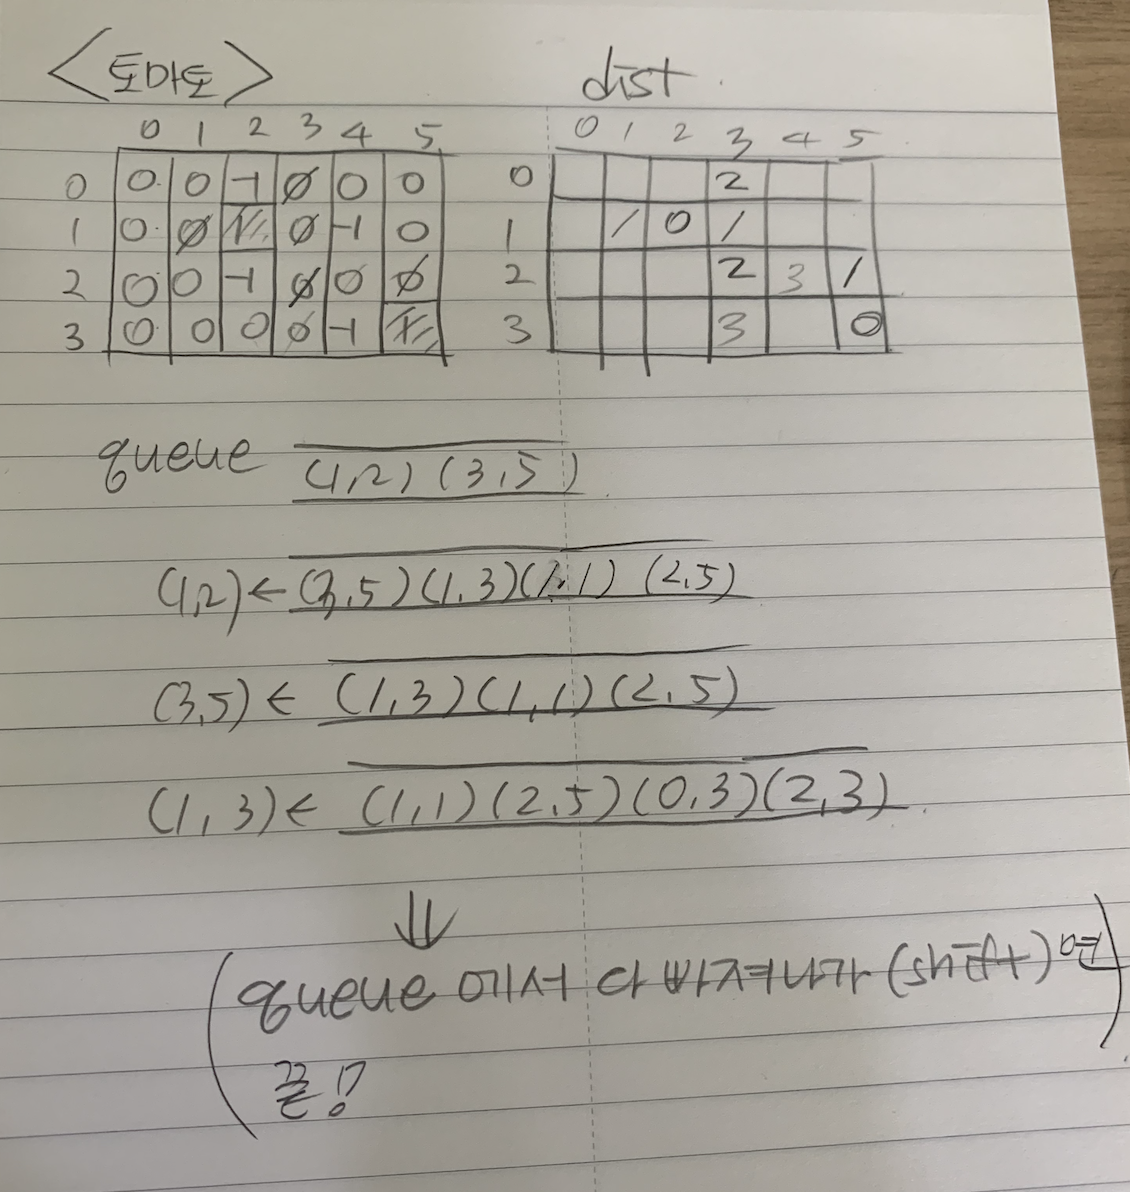 <토마토>
dist.
0 1 2 3 4 5
0 0 0 -1 0 0 0
1 0 0 0 -1 0
2 0 0 -1 0 0 0
3 0 0 0 0 -1
0 1 2 3 4 5
0 2
1 1 0 1
2 2 3 1
3 3 0
queue (1,2) (3,5)
(1,2) ← (3,5) (1,3) (1,1) (2,5)
(3,5) ← (1,3) (1,1) (2,5)
(1,3) ← (1,1) (2,5) (0,3) (2,3)
⇓
(queue 에서 다 빠져나가 (shift) 면
끝!)